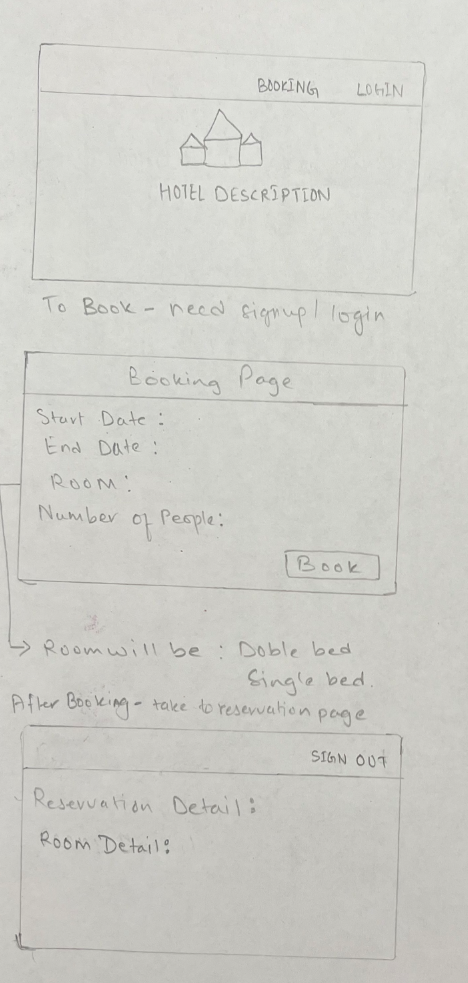 BOOKING LOGIN
HOTEL DESCRIPTION
To Book - need signup/ login
Booking Page
Start Date :
End Date :
ROOM:
Number of People:
Book
Room will be : Doble bed
Single bed.
After Booking - take to reservation page
SIGN OUT
Reservation Detail:
Room Detail: